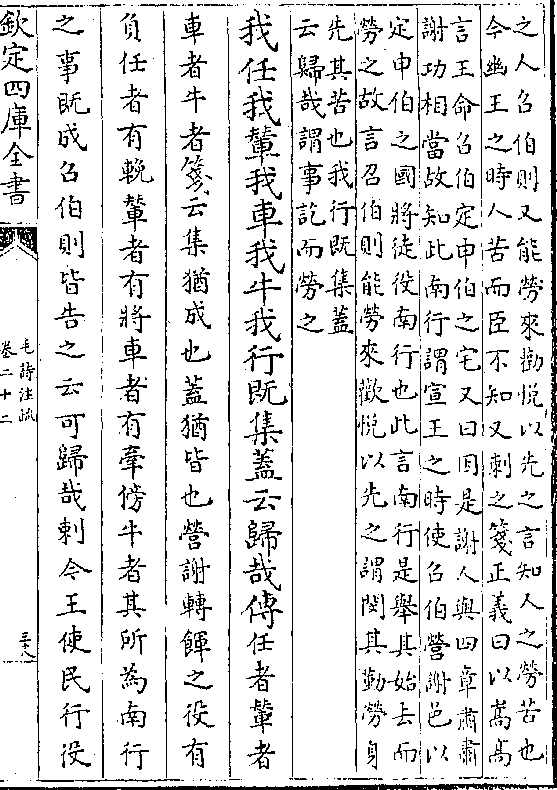 之人召伯則又能勞來勸悦以先之言知人之勞苦也
今幽王之時人苦而臣不知又刺之箋正義曰以嵩髙
言王命召伯定申伯之宅又曰因是謝人與四章肅肅
謝功相當故知此南行謂宣王之時使召伯營謝邑以
定申伯之國將徒役南行也此言南行是舉其始去而
勞之故言召伯則能勞來勸悦以先之謂閔其勤勞身
先其苦也我行既集蓋
云歸哉謂事訖而勞之
我任我輦我車我牛我行既集蓋云歸哉傳任者輦者
車者牛者箋云集猶成也蓋猶皆也營謝轉餫之役有
負任者有輓輦者有將車者有牽傍牛者其所為南行
之事既成召伯則皆告之云可歸哉刺今王使民行役
欽定四庫全書
毛詩注疏
卷二十二
三十八